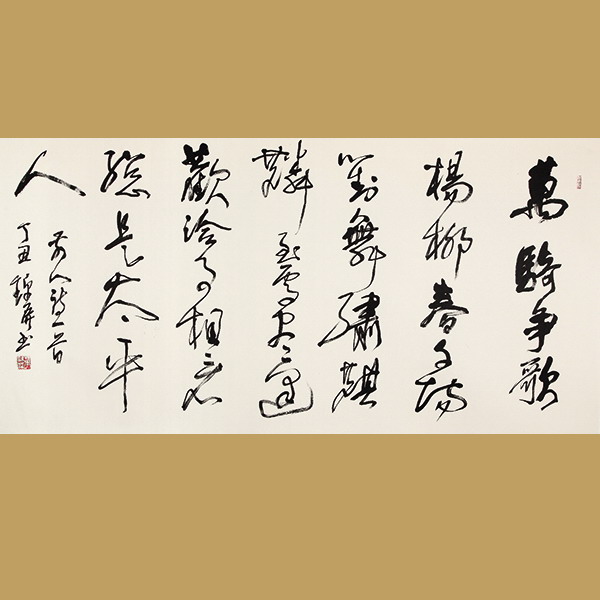 萬騎争歌
楊柳春千場
對舞繡麒
麟到處盡逢
歡洽事相看
總是太平
人
前人詩一首
丁丑 书